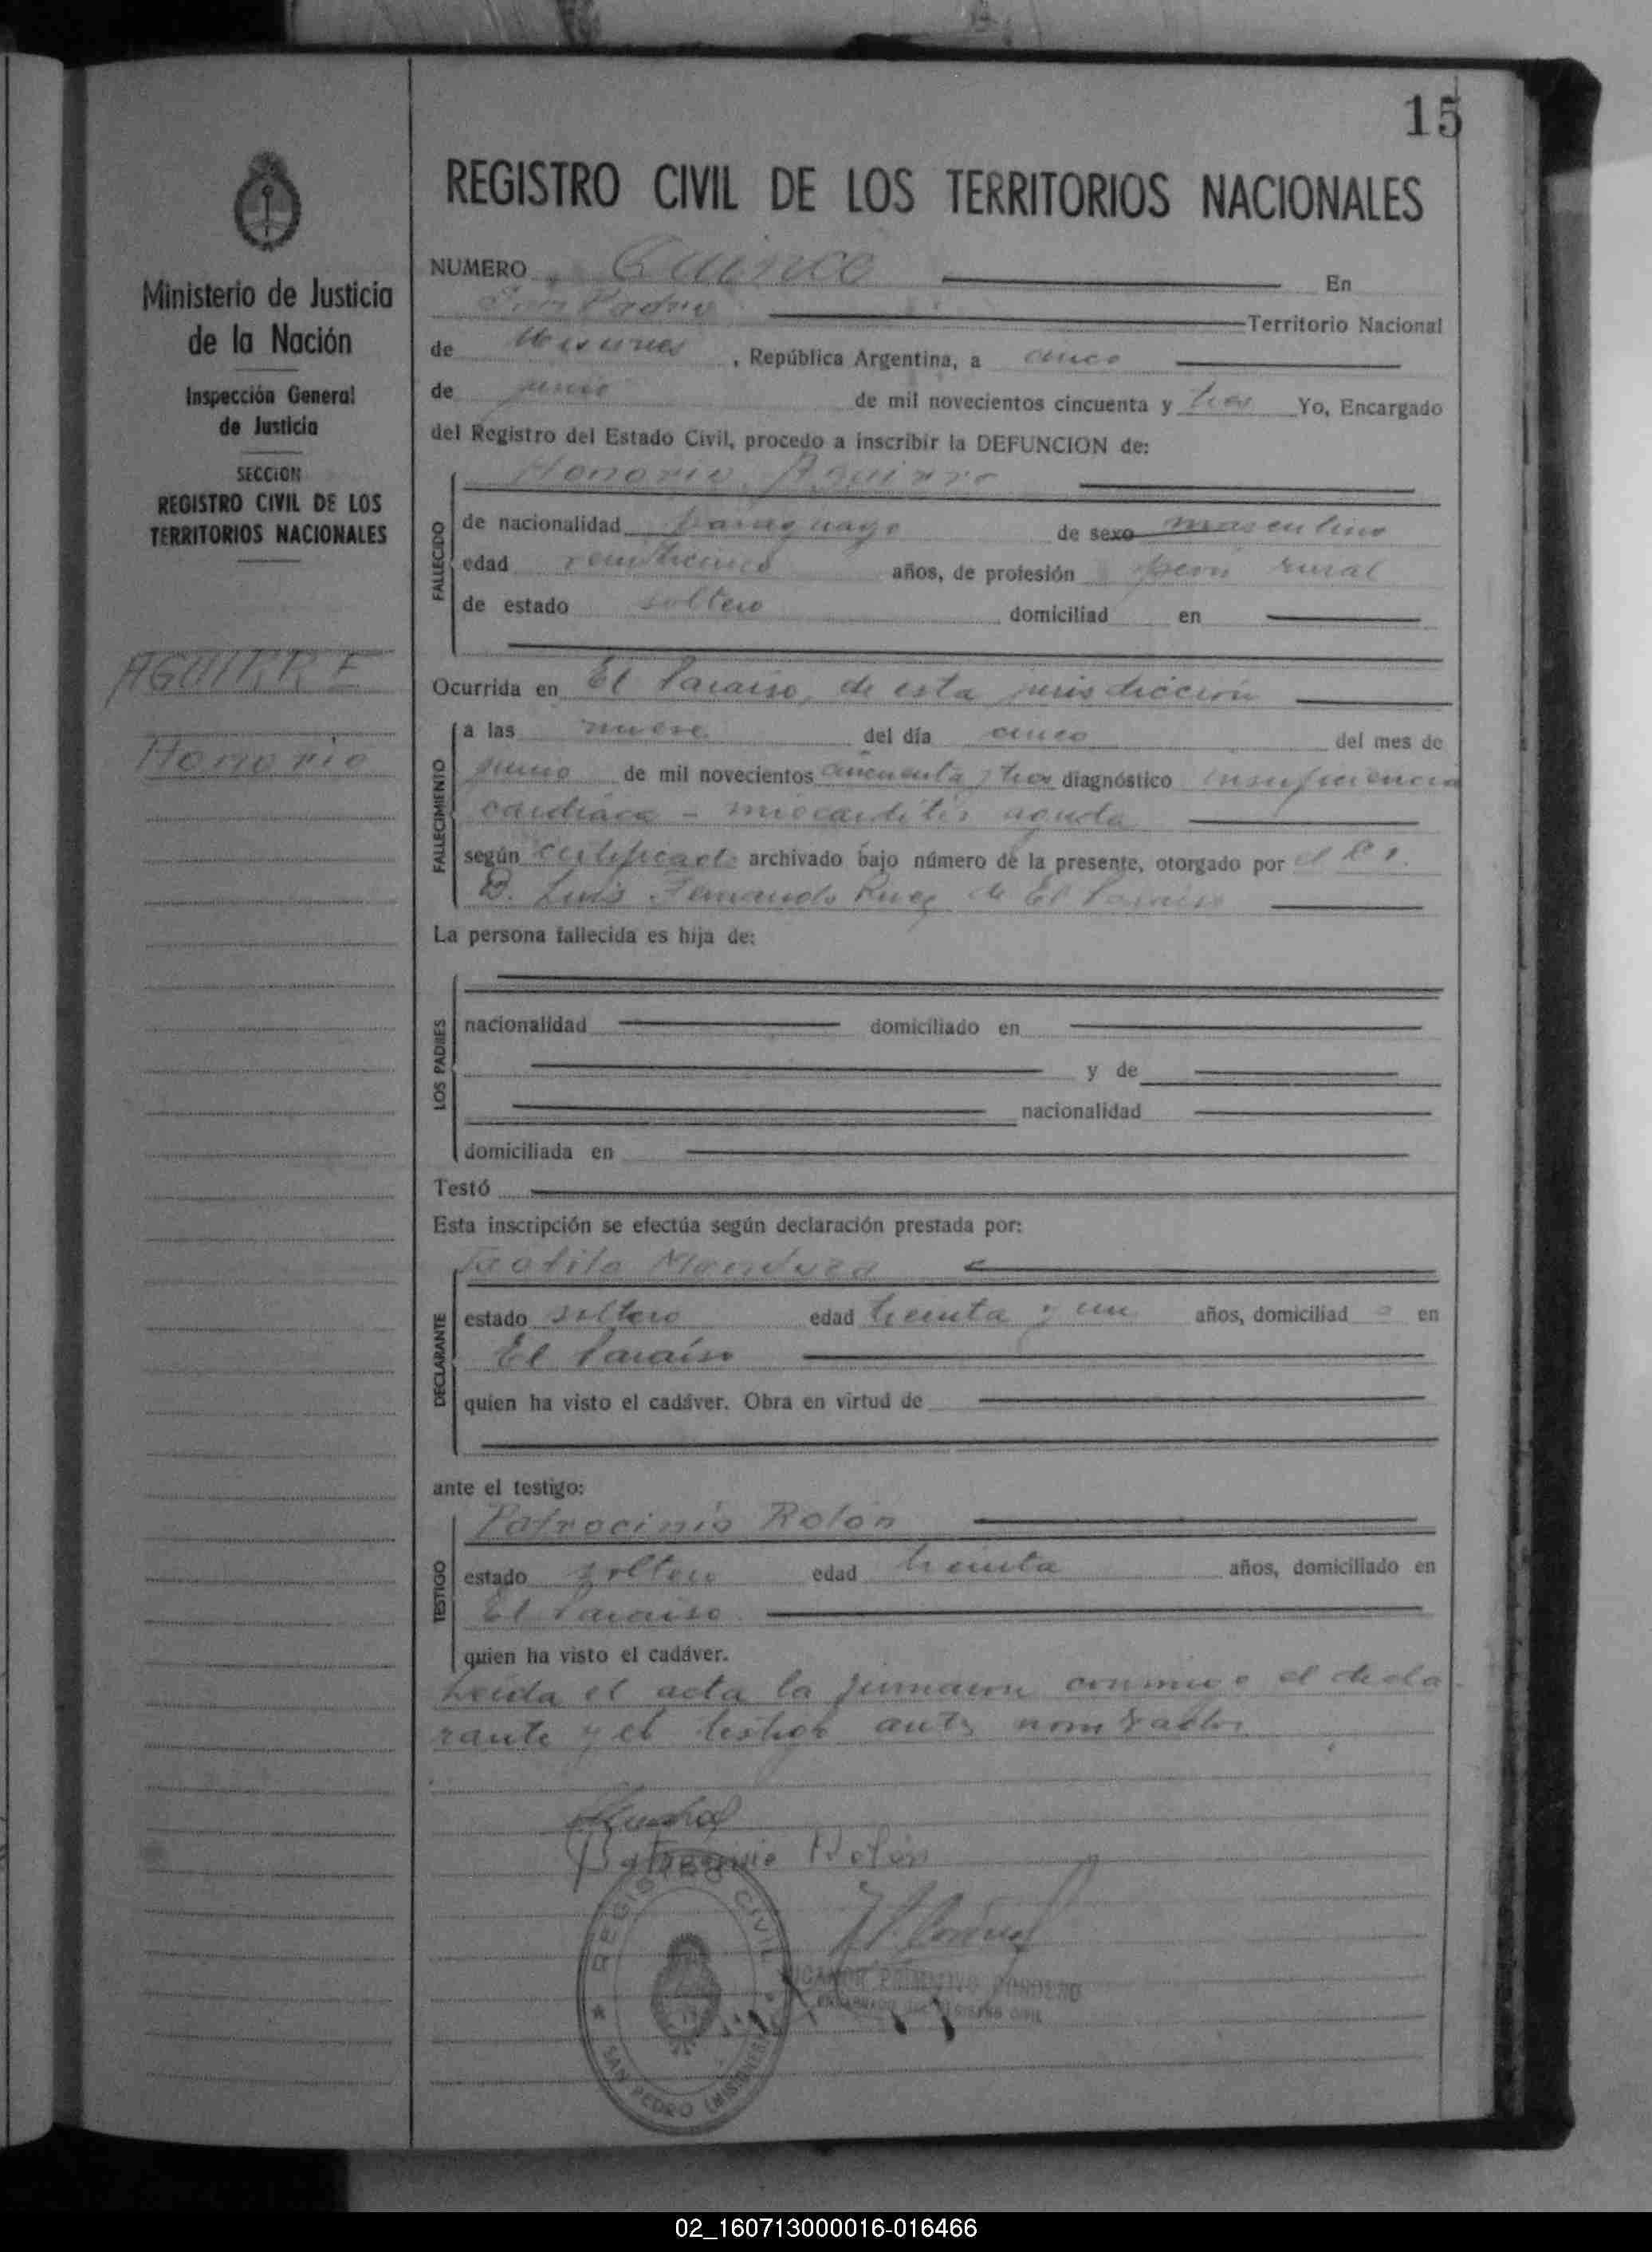 15
REGISTRO CIVIL DE LOS TERRITORIOS NACIONALES
Ministerio de Justicia
de la Nación
Inspección General
de Justicia
SECCION
REGISTRO CIVIL DE LOS
TERRITORIOS NACIONALES
AGUIRRE
Honorio
NUMERO Quince En
San Pedro Territorio Nacional
de Misiones, República Argentina, a cinco
de junio de mil novecientos cincuenta y tres Yo, Encargado
del Registro del Estado Civil, procedo a inscribir la DEFUNCION de:
FALLECIDO
Honorio Aguirre
de nacionalidad paraguayo de sexo masculino
edad veinticinco años, de profesión peón rural
de estado soltero domiciliad en
Ocurrida en El Paraiso, de esta jurisdicción
FALLECIMIENTO
a las nueve del día cinco del mes de
junio de mil novecientos cincuenta y tres diagnóstico insuficiencia
cardiaca - miocarditis aguda
según certificado archivado bajo número de la presente, otorgado por el
D. Luis Fernando de El Paraiso
La persona fallecida es hija de:
LOS PADRES
nacionalidad domiciliado en
y de
nacionalidad
domiciliada en
Testó
Esta inscripción se efectúa según declaración prestada por:
DECLARANTE
Teofilo Mendoza
estado soltero edad treinta y un años, domiciliad o en
El Paraíso
quien ha visto el cadáver. Obra en virtud de
ante el testigo:
TESTIGO
Patrocinio Rolón
estado soltero edad treinta años, domiciliado en
El Paraiso
quien ha visto el cadáver.
Leida el acta la firmaron conmigo el decla
rante y el testigo antes nombrados
Patrocinio Rolón
REGISTRO CIVIL
SAN PEDRO (MISIONES)
PRIMITIVO
ENCARGADO DEL REGISTRO CIVIL
02_160713000016-016466